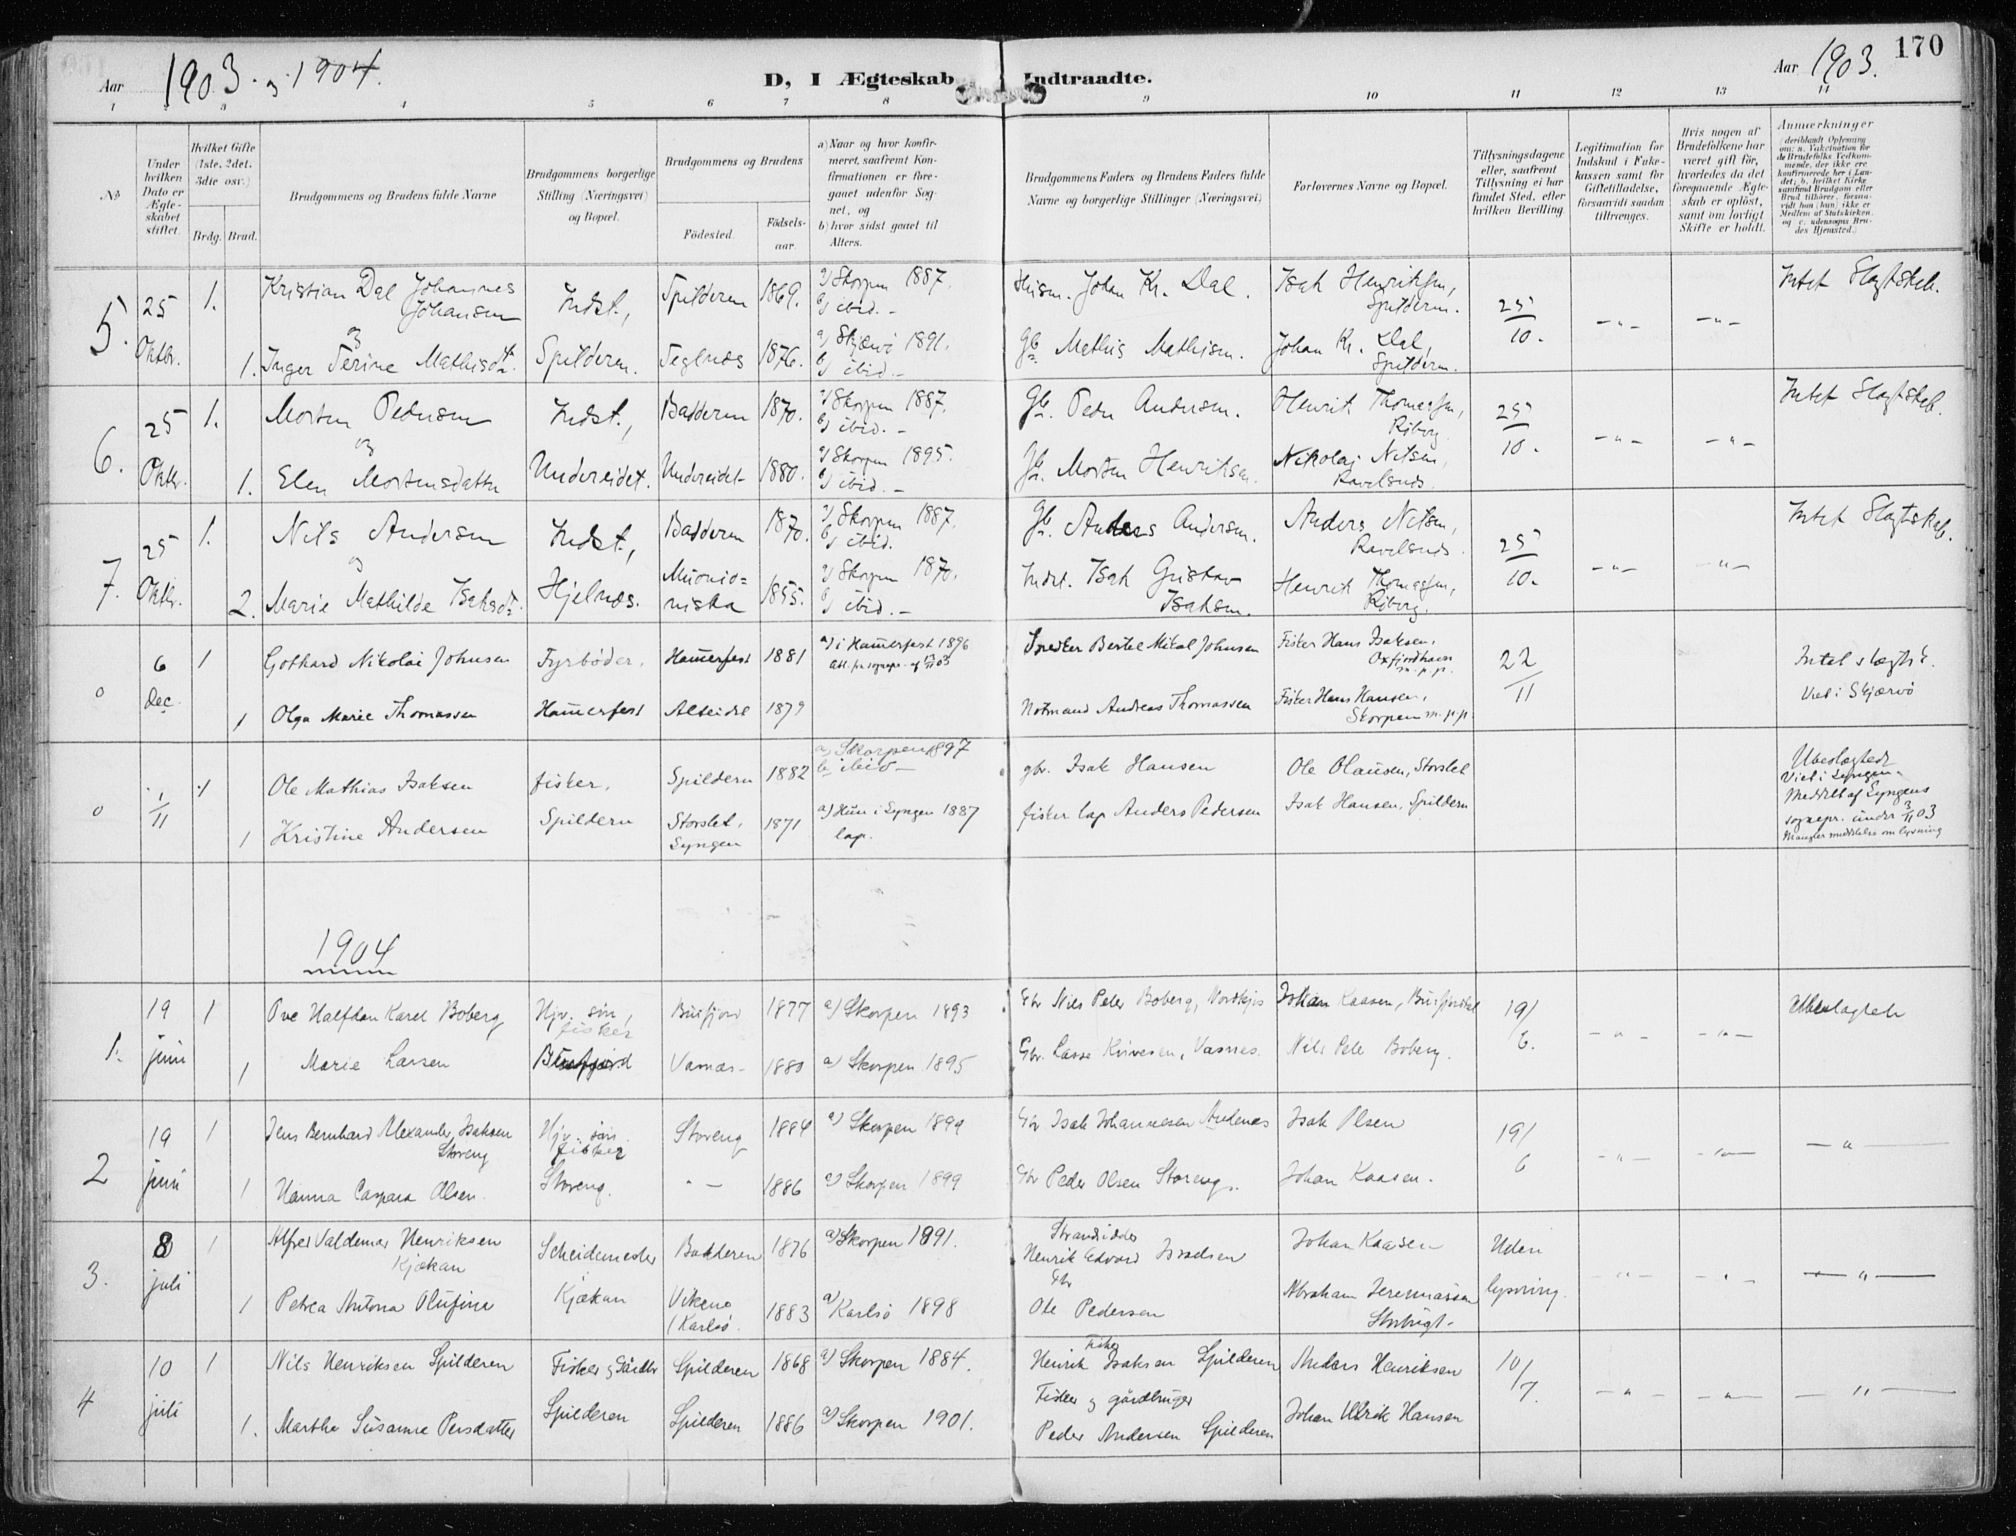 Aar 1903 og 1904.
D, I Ægteskab Indtraadte.
Aar 1903.
170
1 3 4 5 6 7 8 9 10 11 12 13 14
No
Under hvilken Dato er Ægteskabet stiftet.
Hvilket Gifte (1ste, 2det, 3die osv.)
Brdg. Brud.
Brudgommens og Brudens fulde Navne
Brudgommens borgerlige Stilling (Næringsvei) og Bopæl.
Brudgommens og Brudens
Fødested.
Fødselsaar.
a) Naar og hvor konfirmeret, saafremt Konfirmationen er foregaaet udenfor Sognet, og
b) hvor sidst gaaet til Alters.
Brudgommens Faders og Brudens Faders fulde Navne og borgerlige Stillinger (Næringsvei)
Forlovernes Navne og Bopæl.
Tillysningsdagene eller, saafremt Tillysning ei har fundet Sted, efter hvilken Bevilling.
Legitimation for Indskud i Enkekassen samt for Giftetilladelse, forsaavidt saadan tiltrænges.
Hvis nogen af Brudefolkene har været gift før, hvorledes da det foregaaende Ægteskab er opløst, samt om lovligt Skifte er holdt.
Anmærkninger
(deriblandt Oplysning om: a. Vakcination for de Brudefolks Vedkommende, der ikke ere konfirmerede her i Landet; b. hvilket Kirkesamfund Brudgom eller Brud tilhører, forsaavidt han (hun) ikke er Medlem af Statskirken, og c. udensogns Brudes Hjemsted.)
5. 25 Oktbr. 1. Kristian Dal Johannes Johansen Indst., Spilderen 1869. a) Skorpen 1887. b) ibid. – Johan Kr. Dal. Isak Henriksen, Spilderen. 25/10. – " – – " – Intet Slagtskab.
og
1. Inger Serine Mathisdt. Spilderen. Teglnæs 1876. a) Skjærvö 1891. b) ibid. – Gb. Mathis Mathisen. Johan Kr. Dal, Spilderen.
6. 25 Oktbr. 1. Morten Pedersen Indst., Badderen 1870. a) Skorpen 1887. b) ibid. – Gb. Peder Andersen. Henrik Thomassen, 25/10. – " – – " – Intet Slagtskab.
og
1. Elen Mortensdatter Undereidet. Undereidet 1880. a) Skorpen 1895. b) ibid. – Gb. Morten Henriksen. Nikolai Nilsen, Ravelsnes.
7. 25 Oktbr. 1. Nils Andersen Indst., Badderen 1870. a) Skorpen 1887. b) ibid. Gb. Anders Andersen. Anders Nilsen, Ravelsnes. 25/10. – " – – " – Intet Slagtskab.
og
2. Marie Mathilde Isaksdt. Hjelnæs. Muonioniska 1855. a) Skorpen 1870. b) ibid. – Indst. Isak Gustav Isaksen. Henrik Thomassen,
0 6 Dec. 1 Gothard Nikolai Johnsen Fyrbøder, Hammerfest 1881 a) i Hammerfest 1896 Snedker Bertel Mikal Johnsen Fisker Hans Isaksen, Oxfjordhavn m.p.p. 22/11 Intet slægtsk.
1 Olga Marie Thomassen Hammerfest Alteidet 1879 Notmand Andreas Thomassen Fisker Hans Hansen, Skorpen m.p.p. Viet i Skjærvö
0 1/11 1 Ole Mathias Isaksen fisker, Spildern 1882 a) Skorpen 1897 b) ibid – gbr. Isak Hansen Ole Olausen, Storslet Ubeslægtede Viet i Lyngen. Meddelt af Lyngens sognepr. under 3/11 03 Mangler meddelelse om lysning
1 Kristine Andersen Spildern Storslet, Lyngen 1871 a) Hun i Lyngen 1887 lap. fisker lap Anders Pedersen Isak Hansen, Spildern
1904
1. 19 juni 1 Ove Halfdan Karel Boberg Gjv. søn, fisker Burfjord 1877 a) Skorpen 1893 Gbr Nils Peter Boberg, Johan Kaasen, Burfjorddal 19/6. – " – – " – Ubeslagtede
1 Marie Larsen Burfjord Vasnæs – 1880 a) Skorpen 1895 Gbr. Lasse Vasnes. Nils Peter Boberg.
2 19 juni 1 Jens Bernhard Alexander Isaksen Storeng Gjv. søn. fisker Storeng 1884 a) Skorpen 1899 Gbr Isak Johannesen Andenæs Isak Olsen 19/6 – " – – " – – " –
1 Hanna Caspara Olsen. Storeng. " – 1886 a) Skorpen 1899 Gbr Peder Olsen Storeng. Johan Kaasen.
3. 8 juli 1 Alfred Valdemar Henriksen Kjækan Badderen 1876 a) Skorpen 1891. Strandsidder Henrik Edvard Israelsen Johan Kaasen Uden lysning. – " – – " – – " –
1 Petrea Antona Olufine Kjækan Karlsö. 1883 a) Karlsö 1898 Gbr Ole Pedersen Abraham Jeremiassen Storbugt.
4 10 juli 1 Nils Henriksen Spilderen Fisker og Spilderen 1868 a) Skorpen 1884. Fisker Henrik Isaksen Spilderen Anders Henriksen 10/7. – " – – " – – " –
1. Marthe Susanne Persdatter Spilderen Spilderen 1886 a) Skorpen 1901. Fisker og gårdbruger Peder Andersen Spilderen Johan Ulrik Hansen